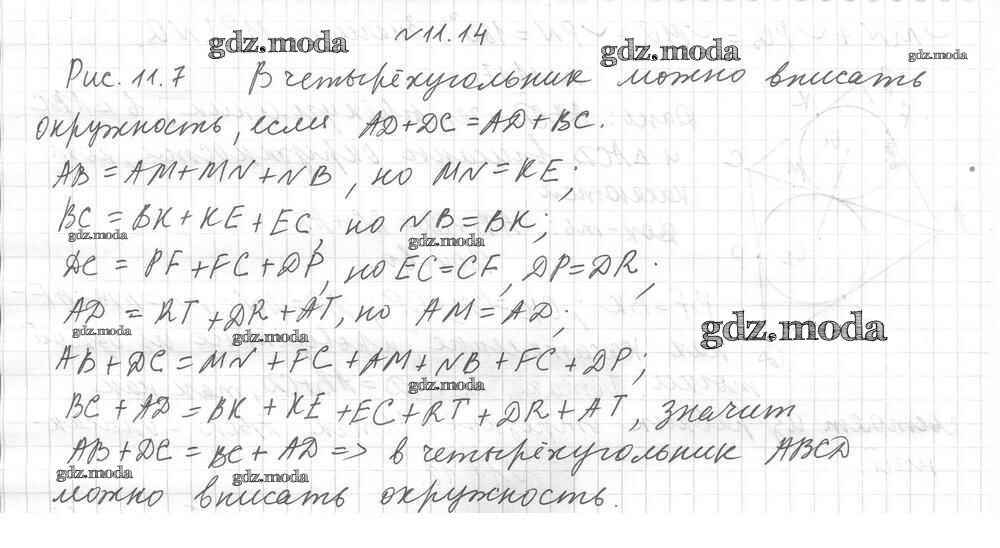 №11.14
Рис. 11.7 В четырёхугольник можно вписать
окружность, если AD+DC=AD+BC.
AB=AM+MN+NB, но MN=KE;
BC=BK+KE+EC, но NB=BK;
DC=PF+FC+DP, но EC=CF, DP=DR;
AD=RT+DR+AT, но AM=AD;
AB+DC=MN+FC+AM+NB+FC+DP;
BC+AD=BK+KE+EC+RT+DR+AT, значит
AB+DC=BC+AD => в четырёхугольник ABCD
можно вписать окружность.
gdz.moda
gdz.moda
gdz.moda
gdz.moda
gdz.moda
gdz.moda
gdz.moda
gdz.moda
gdz.moda
gdz.moda
gdz.moda